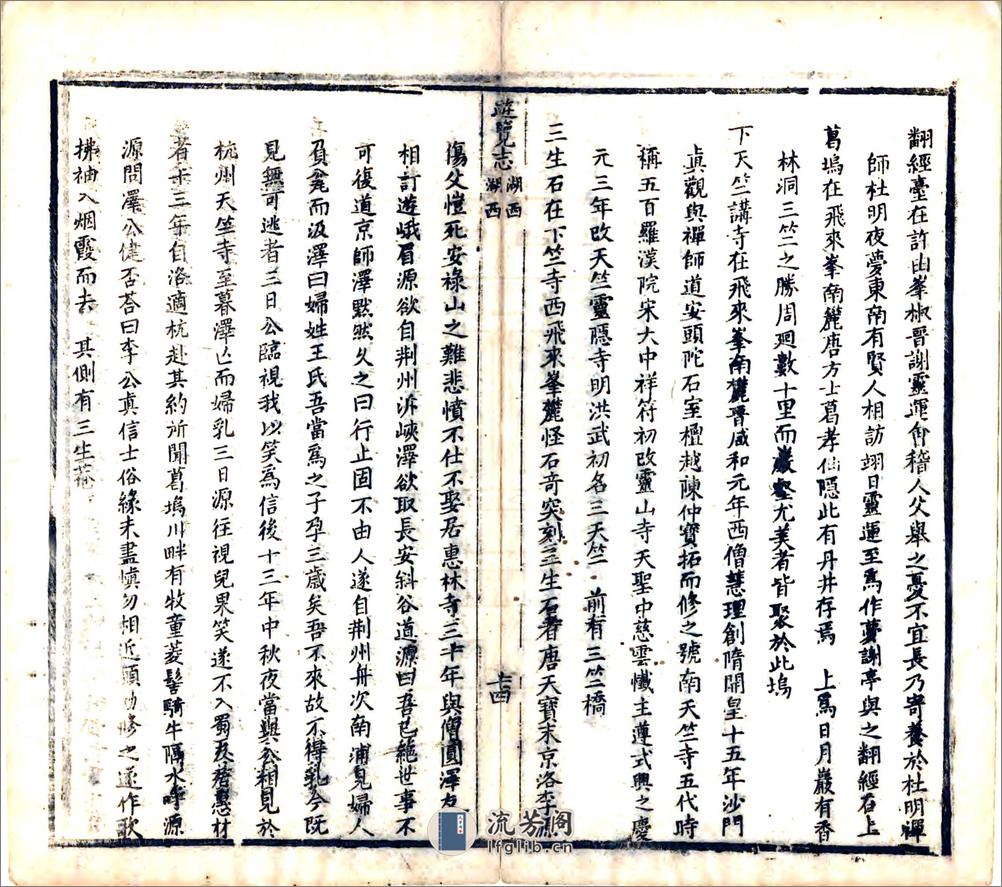 翻經臺在許由峯椒晉謝靈運會稽人父舉之憂不宜長乃寄養於杜明禪
師杜明夜夢東南有賢人相訪翊日靈運至為作夢謝亭與之翻經石上
葛塢在飛來峯南麓唐方士葛孝仙隱此有丹井存焉 上為日月巖有香
林洞三竺之勝周廻數十里而巖壑尤美者皆聚於此塢
下天竺講寺在飛來峯南麓晉咸和元年西僧慧理創隋開皇十五年沙門
眞觀與禪師道安頭陀石室檀越陳仲寶拓而修之號南天竺寺五代時
稱五百羅漢院宋大中祥符初改靈山寺天聖中慈雲懺主遵式興之慶
元三年改天竺靈隱寺明洪武初名三天竺 前有三竺橋
三生石在下竺寺西飛來峯麓怪石竒突刻三生石者唐天寶末京洛李源
遊覽志 湖西 湖西
十四
傷父愷死安祿山之難悲憤不仕不娶居惠林寺三十年與僧圓澤友
相訂遊峨眉源欲自荆州泝峽澤欲取長安斜谷道源曰吾已絕世事不
可復道京師澤黙然久之曰行止固不由人遂自荆州舟次南浦見婦人
負甕而汲澤曰婦姓王氏吾當為之子孕三歲矣吾不來故不得乳今既
見無可逃者三日公臨視我以笑為信後十三年中秋夜當與公相見於
杭州天竺寺至暮澤亡而婦乳三日源往視兒果笑遂不入蜀反
者十三年自洛適杭赴其約所聞葛塢川畔有牧童菱髻騎牛隔水呼源
源問澤公健否荅曰李公真信士俗緣未盡愼勿相近頭勤修之遂作歌
拂袖入烟霞而去 其側有三生菴
流芳阁
lfglib.cn